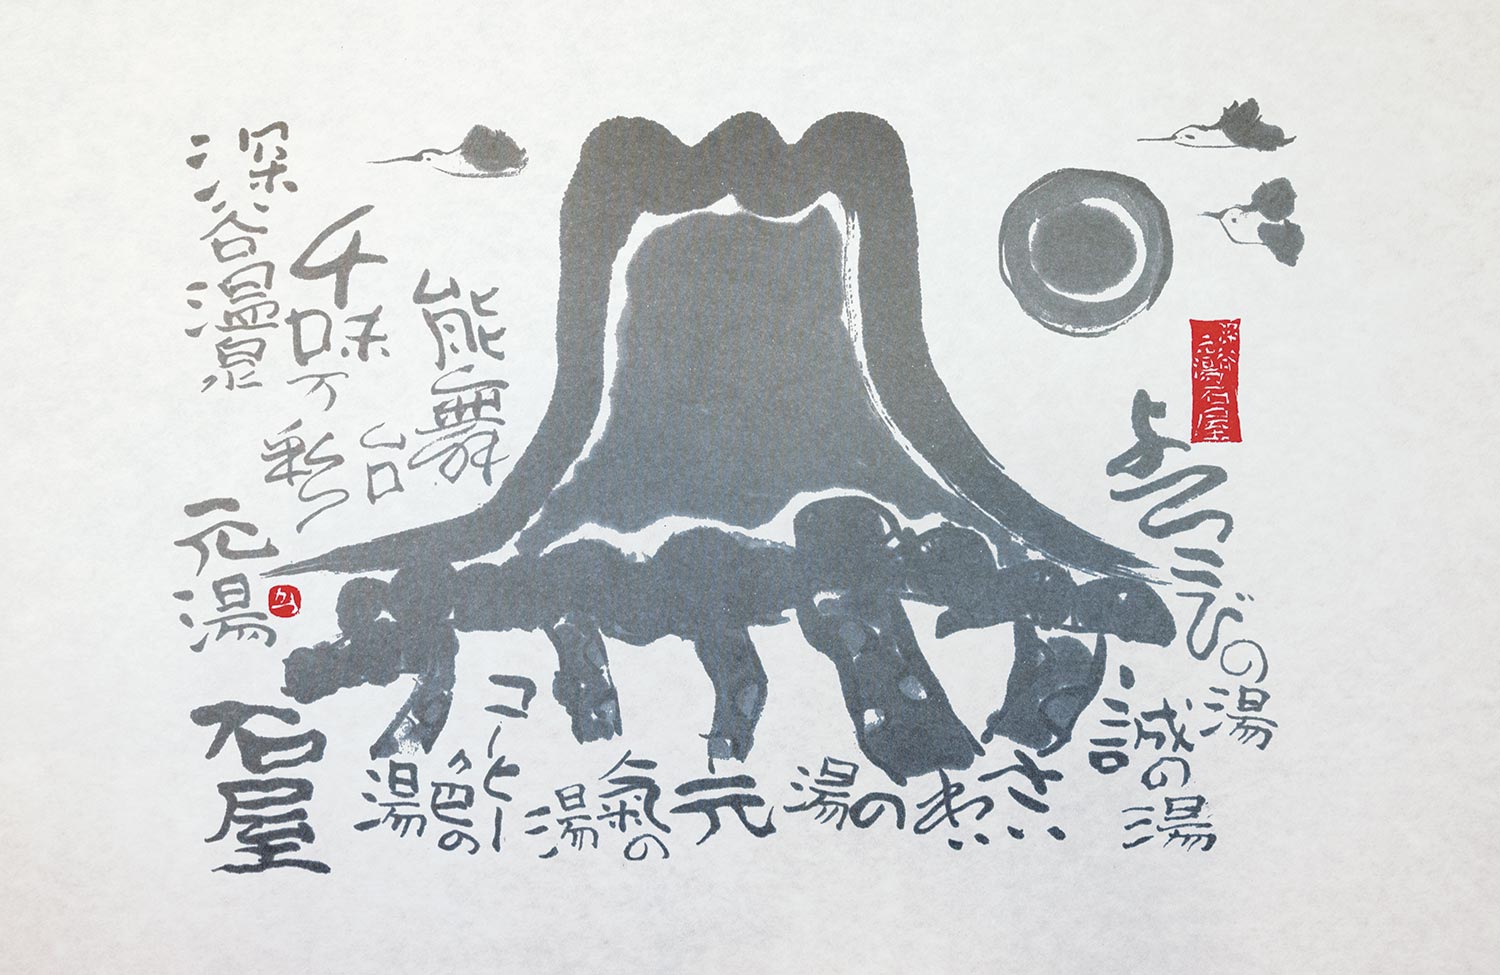 深谷
元湯石屋
よろこびの湯
誠の湯
さいわいの湯
元氣の湯
コーヒー
色の湯
能舞台
千味万彩
深谷温泉
元湯
石屋